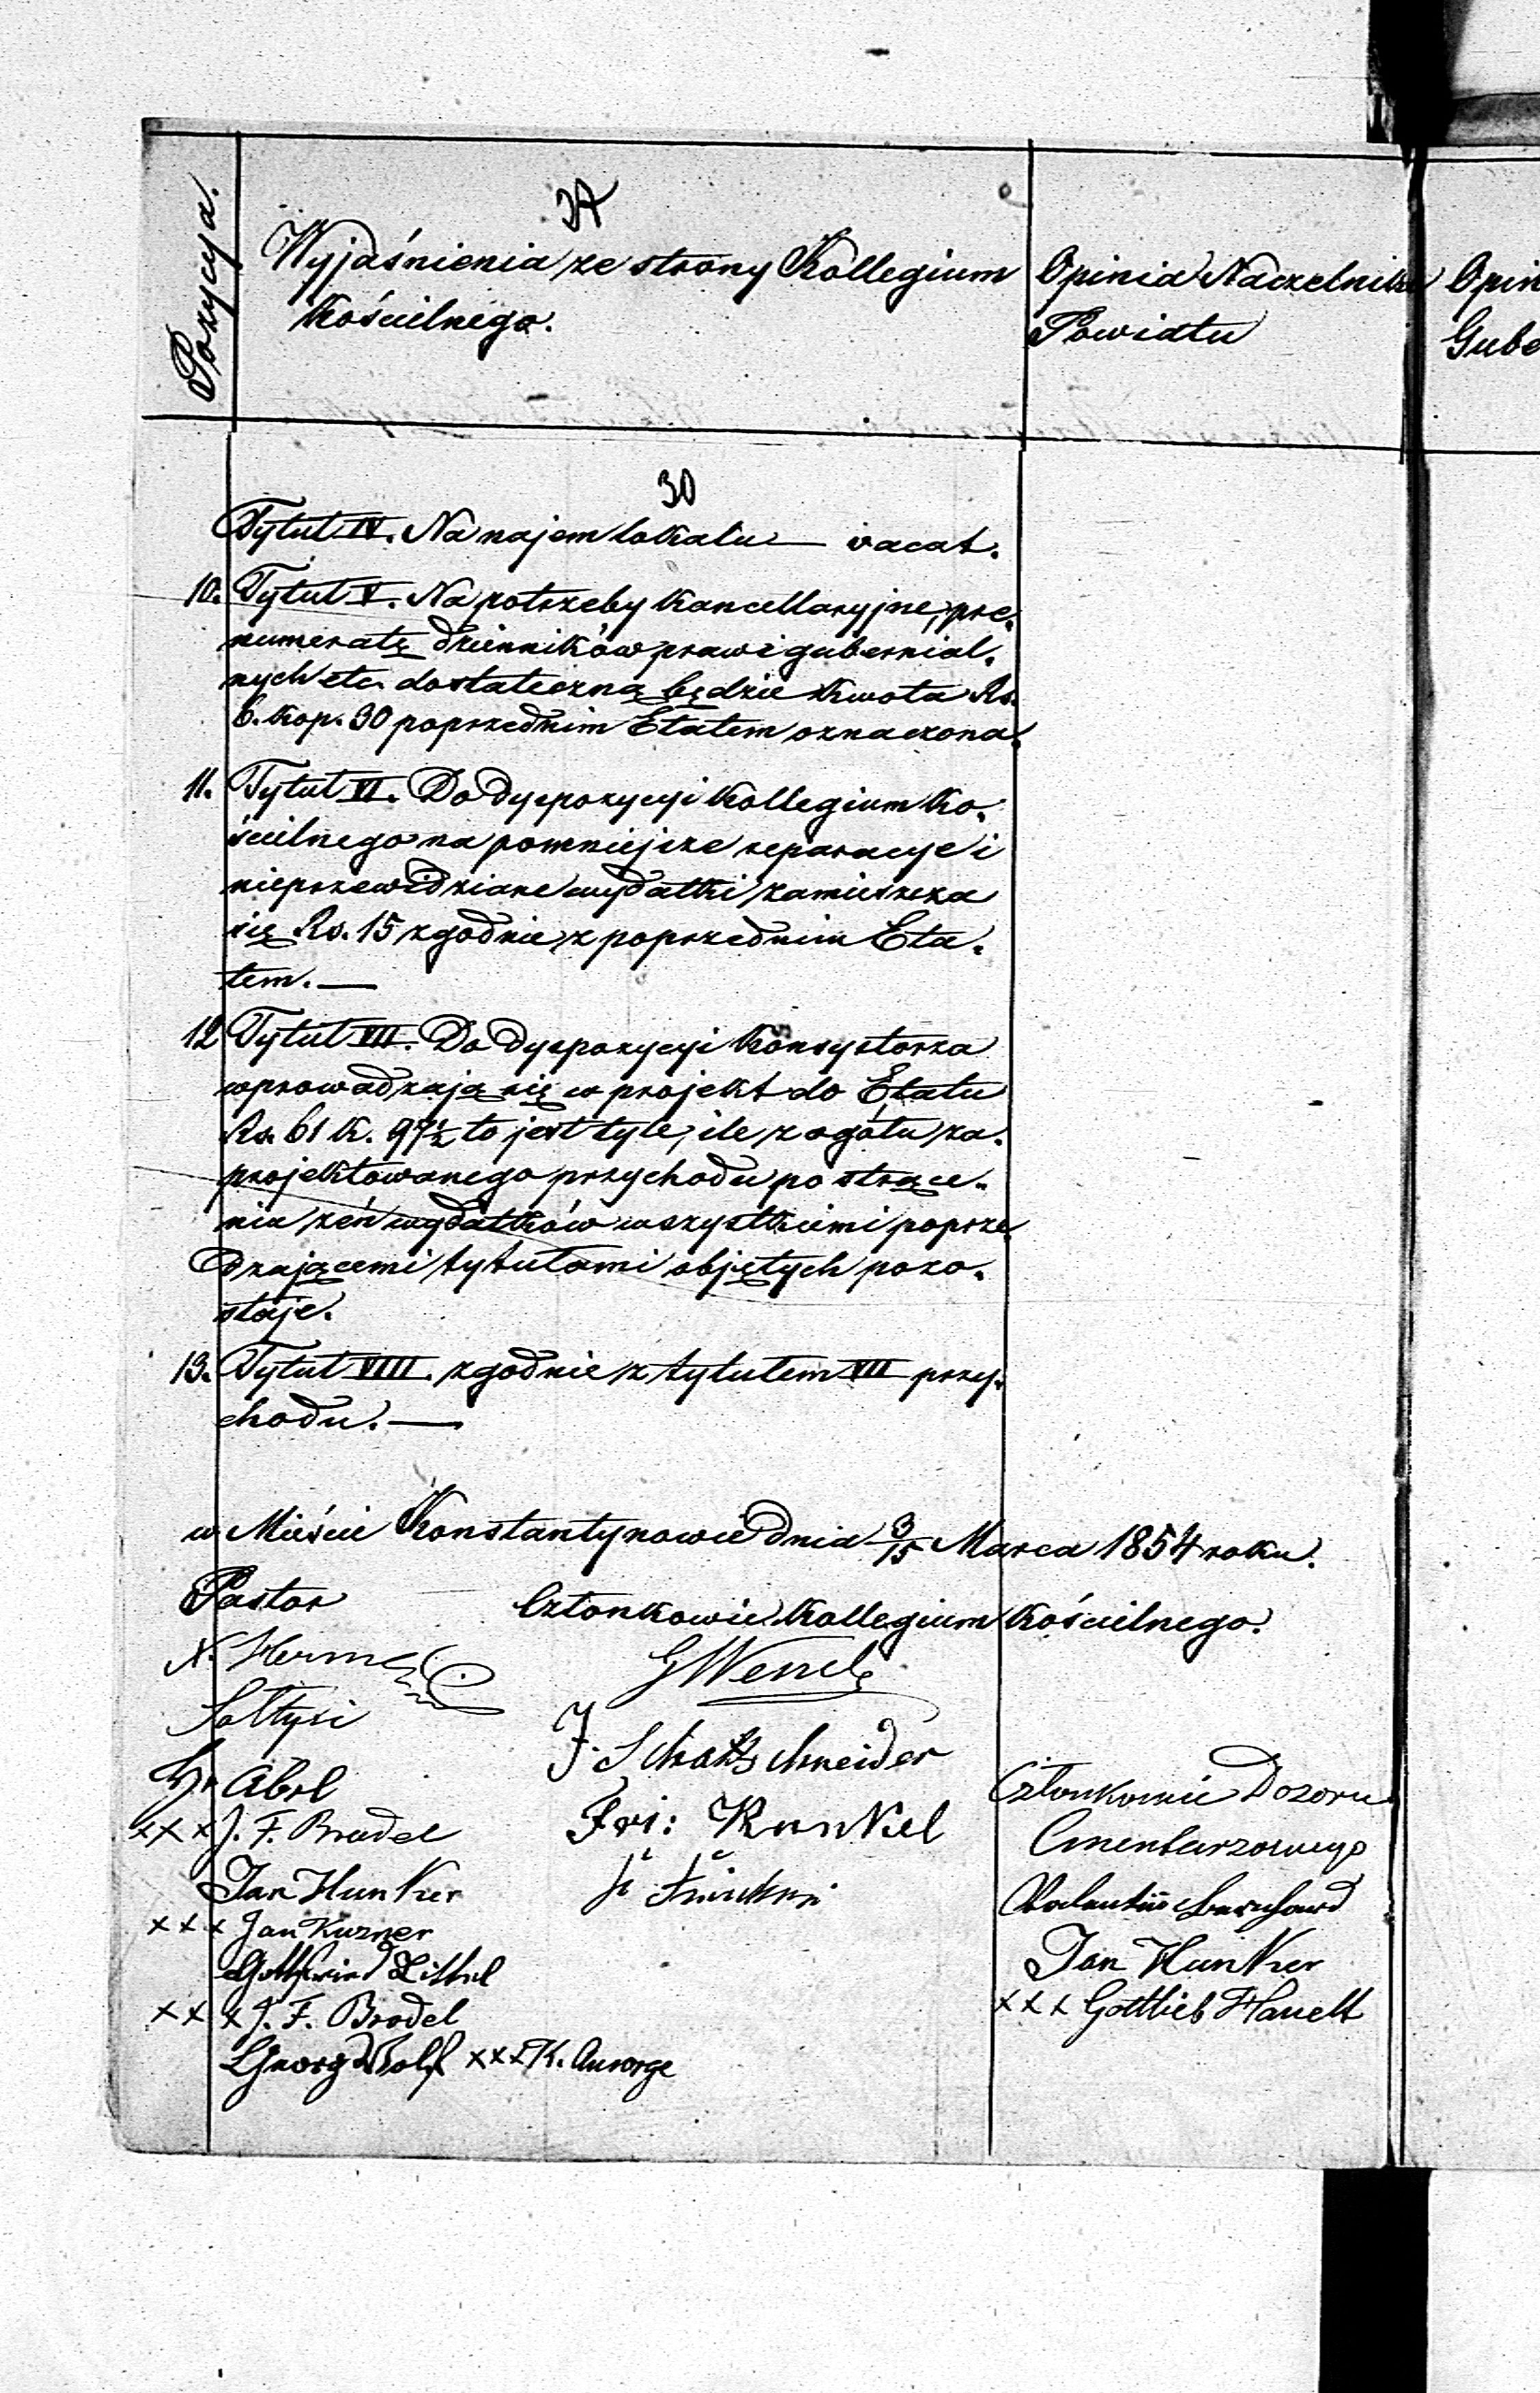 Pozycya.
Wyjaśnienia ze strony Kollegium
Kościelnego.
Opinia Naczelnika
Powiatu
Opin
Gube
30
Tytuł IV. Na najem lokalu — vacat.
10. Tytuł V. Na potrzeby kancellaryjne, pre-
numeratę dzienników praw i gubernial-
nych etc. dostateczną będzie kwota Rs.
6. kop. 30 poprzednim Etatem oznaczona.
11. Tytuł VI. Do dyspozycyi Kollegium Ko-
ścielnego na pomniejsze reparacye i
nieprzewidziane wydatki zamieszcza
się Rs. 15 zgodnie z poprzednim Eta-
tem. —
12 Tytuł VII. Do dyspozycyi Konsystorza
wprowadzają się w projekt do Etatu
Rs. 61 k. 97½ to jest tyle, ile z ogółu za-
projektowanego przychodu po strące-
niu zeń wydatków wszystkiemi poprze
dzającemi tytułami objętych pozo-
staje.
13. Tytuł VIII. zgodnie z tytułem VII przy-
chodu. —
w Mieście Konstantynowie dnia 3/15 Marca 1854 roku.
Pastor
Członkowie Kollegium Kościelnego.
Sołtysi
GWende
J. Schattschneider
Abel
Fri: Kunkel
xxx J. F. Bradel
Jan Hunker
xxx Jan Kurner
xxx J. F. Brodel
Georg Wolf xxx K. Anvorge
Członkowie Dozoru
Cmentarzowego
Valentin Bernhard
Jan Hunker
xxx Gottlieb Hauelt